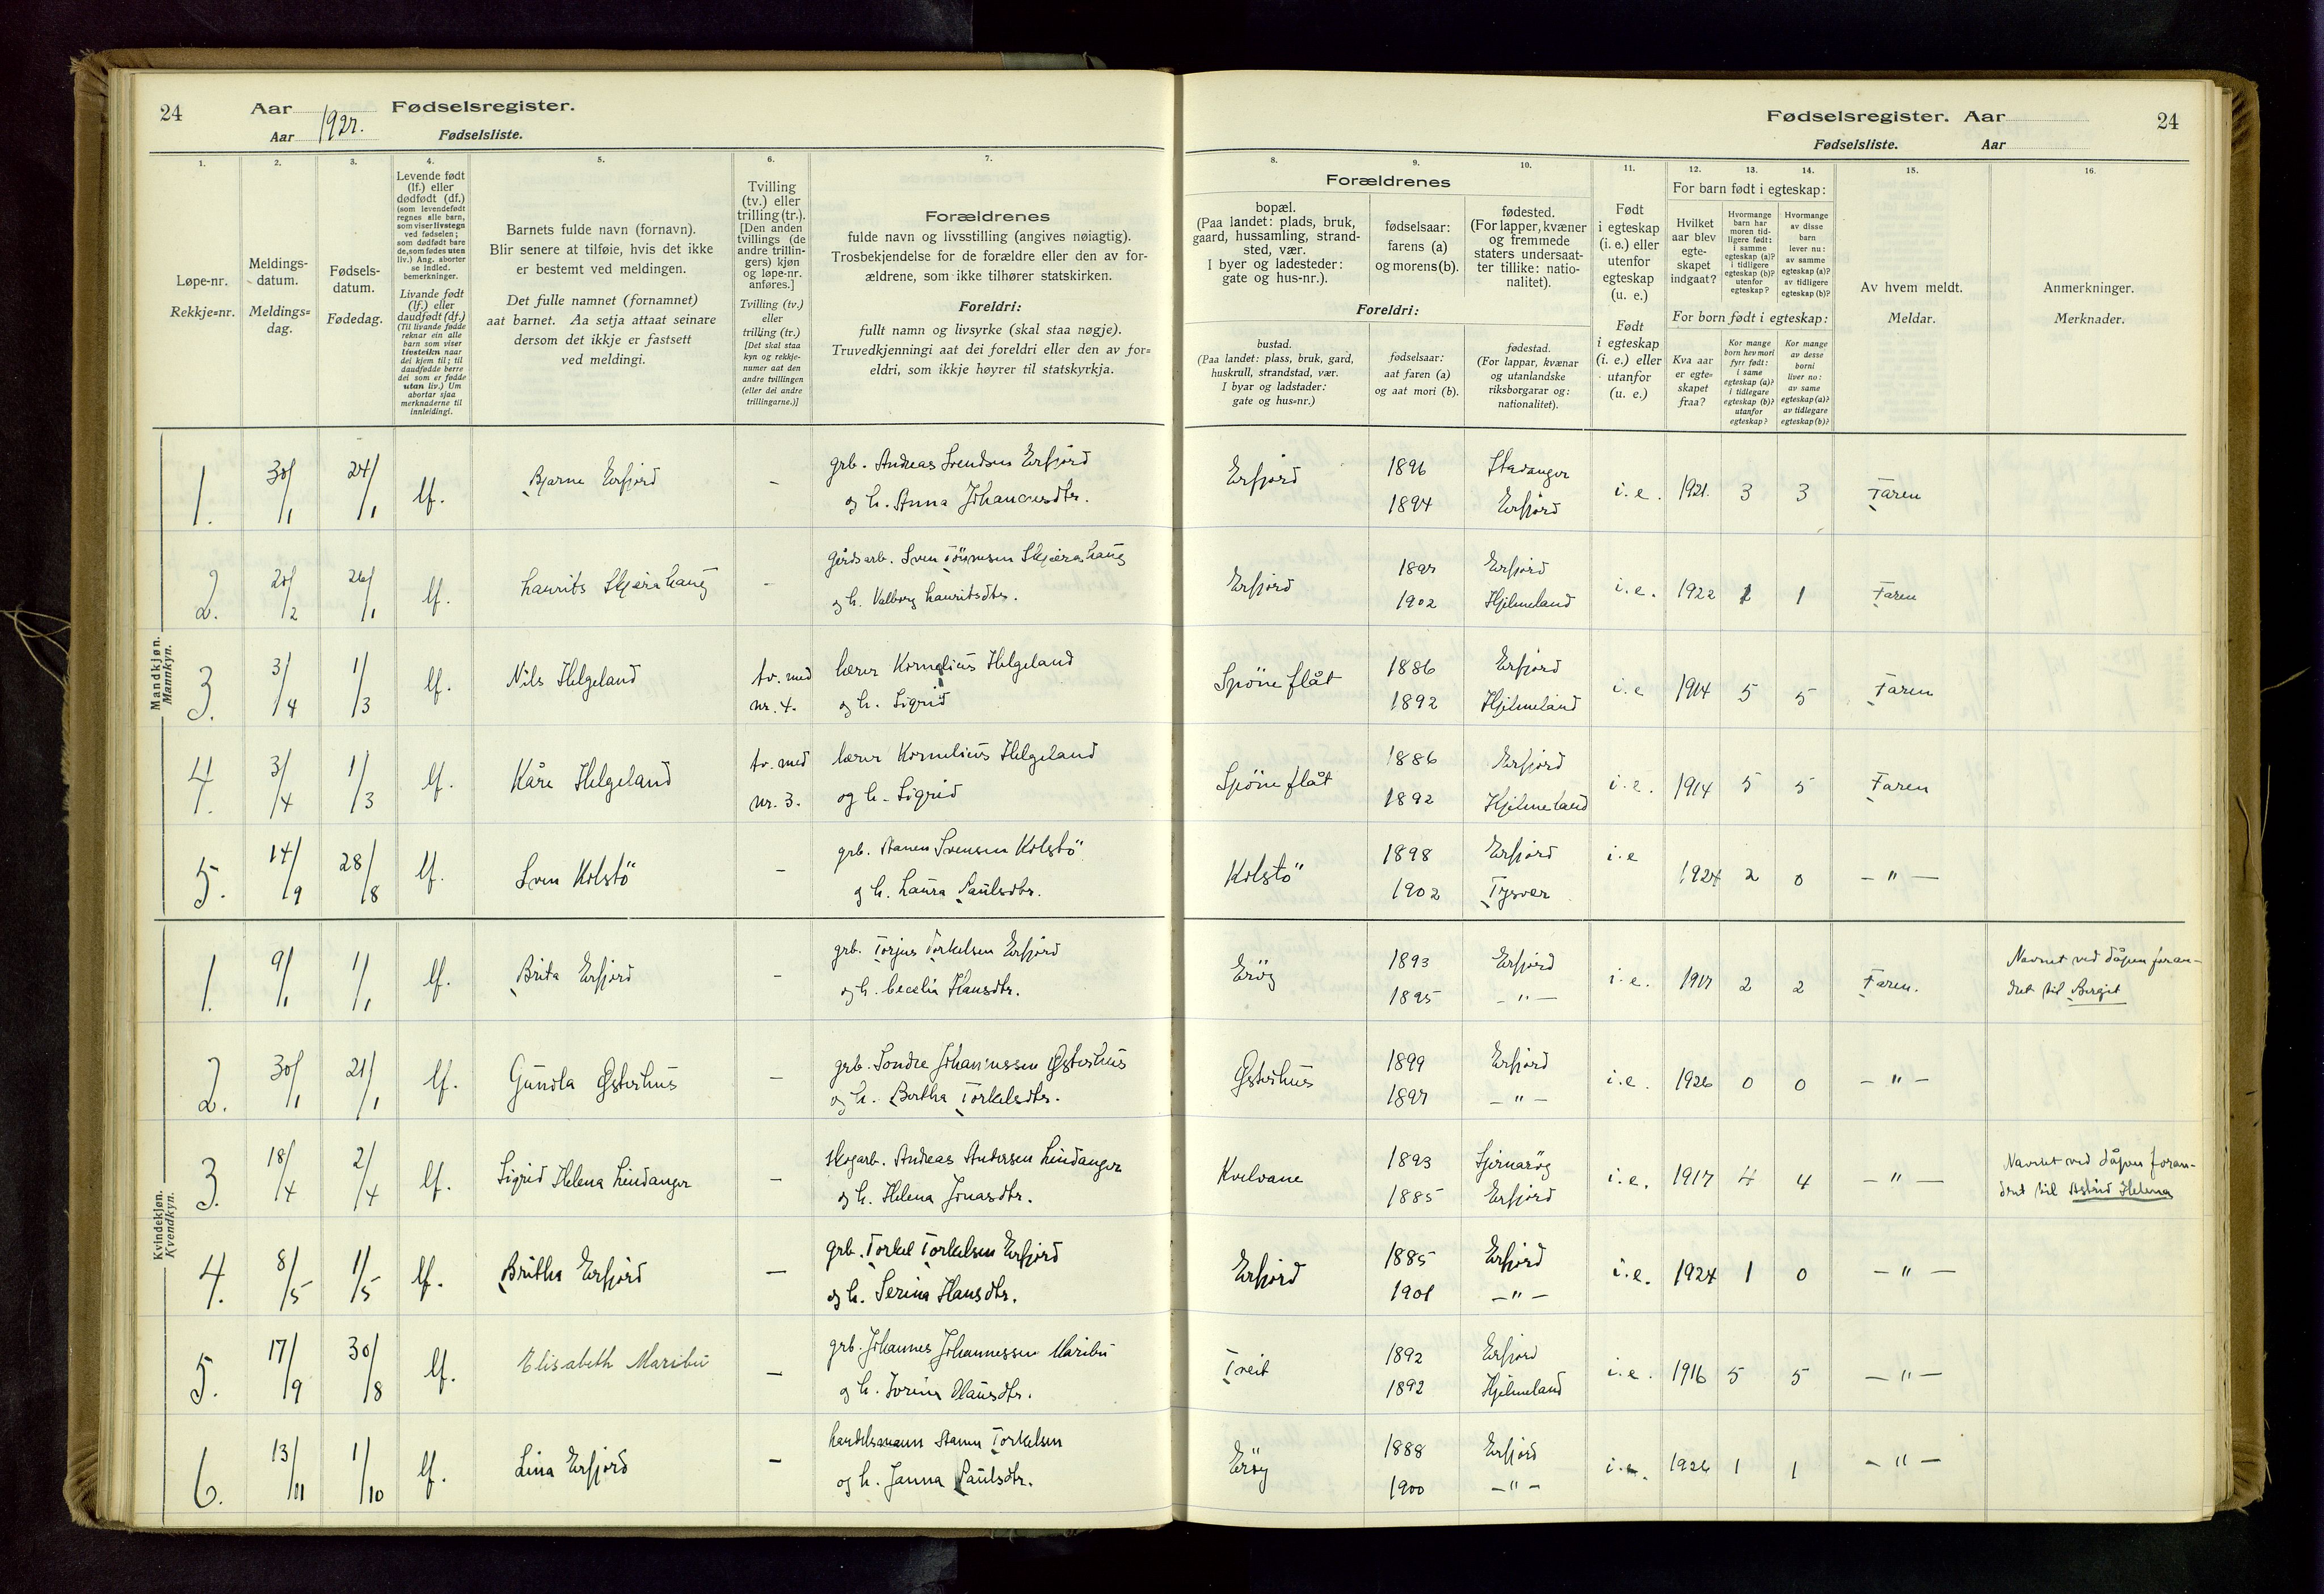 24
Aar
Fødselsregister.
Aar 1927.
Fødselsliste.
1.
2.
3.
4.
5.
6.
7.
Løpe-nr.
Rekkje=nr.
Meldings-
datum.
Meldings=
dag.
Fødsels-
datum.
Fødedag.
Levende født
(lf.) eller
dødfødt (df.)
(som levendefødt
regnes alle barn,
som viser livstegn
ved fødselen;
som dødfødt bare
de, som fødes uten
liv.) Ang. aborter
se indled.
bemerkninger.
Livande født
(lf.) eller
daudfødt (df.)
(Til livande fødde
reknar ein alle
barn som viser
livsteikn naar
dei kjem til; til
daudfødde berre
dei som er fødde
utan liv.) Um
abortar sjaa
merknaderne til
innleidingi.
Barnets fulde navn (fornavn).
Blir senere at tilføie, hvis det ikke
er bestemt ved meldingen.
Det fulle namnet (fornamnet)
aat barnet. Aa setja attaat seinare
dersom det ikkje er fastsett
ved meldingi.
Tvilling
(tv.) eller
trilling (tr.).
[Den anden
tvillings (de
andre trillin-
gers) kjøn
og løpe-nr.
anføres.]
Tvilling (tv.)
eller
trilling (tr.)
[Det skal staa
kyn og rekkje-
numer aat den
andre tvillingen
(eller dei andre
trillingarne.)]
Forældrenes
fulde navn og livsstilling (angives nøiagtig).
Trosbekjendelse for de forældre eller den av for-
ældrene, som ikke tilhører statskirken.
Foreldri:
fullt namn og livsyrke (skal staa nøgje).
Truvedkjenningi aat dei foreldri eller den av for=
eldri, som ikkje høyrer til statskyrkja.
Mandkjøn.
Mannkyn.
1. 30/1 24/1 lf. Bjarne Erfjord - grb. Andreas Svendsen Erfjord
og h. Anna Johannesdtr.
2. 20/2 26/1 lf. Laurits Skjærahaug - gårdsarb. Sven Tönnesen Skjærahaug
og h. Valborg Lauritsdtr.
3. 3/4 1/3 lf. Nils Helgeland tv. med lærer Kornelius Helgeland
nr. 4. og h. Sigrid
4. 3/4 1/3 lf. Kåre Helgeland tv. med lærer Kornelius Helgeland
nr. 3. og h. Sigrid
5. 14/9 28/8 lf. Sven Kolstö - grb. Svensen Kolstö
og h. Laura Paulsdtr.
Kvindekjøn.
Kvendkyn.
1. 9/1 1/1 lf. Brita Erfjord - grb. Torjus Torkelsen Erfjord
og h. Cecelia Hansdtr.
2. 30/1 21/1 lf. Gunda Østerhus - grb. Sondre Johannessen Østerhus
og h. Bertha Torkelsdtr.
3. 18/4 2/4 lf. Sigrid Helena Lindanger - skogarb. Andreas Andersen Lindanger
og h. Helena Jonasdtr.
4. 8/5 1/5 lf. Britha Erfjord - grb. Torkel Torkelsen Erfjord
og h. Serina Hansdtr.
5. 17/9 30/8 lf. Elisabeth Maribu - grb. Johannes Johannessen Maribu
og h. Jorina Olausdtr.
6. 13/11 1/10 lf. Lina Erfjord - handelsmann Torkelsen
og h. Janna Paulsdtr.
Fødselsregister. Aar
24
Fødselsliste. Aar
8.
9.
10.
11.
12.
13.
14.
15.
16.
Forældrenes
bopæl.
(Paa landet: plads, bruk,
gaard, hussamling, strand-
sted, vær.
I byer og ladesteder:
gate og hus-nr.).
fødselsaar:
farens (a)
og morens (b).
fødested.
(For lapper, kvæner
og fremmede
staters undersaat-
ter tillike: natio-
nalitet).
Foreldri:
bustad.
(Paa landet: plass, bruk, gard,
huskrull, strandstad, vær.
I byar og ladstader:
gate og hus=nr.)
fødselsaar:
aat faren (a)
og aat mori (b).
fødestad.
(For lappar, kvænar
og utanlandske
riksborgarar og:
nationalitet).
Født
i egteskap
(i. e.) eller
utenfor
egteskap
(u. e.)
Født
i egteskap
(i. e.) eller
utanfor
(u. e.)
For barn født i egteskap:
Hvilket
aar blev
egte-
skapet
indgaat?
Hvormange
barn har
moren tid-
ligere født:
i samme
egteskap (a)?
i tidligere
egteskap (b)?
utenfor
egteskap?
Hvormange
av disse
barn
lever nu:
av samme
egteskap (a)?
av tidligere
egteskap (b)?
For born født i egteskap:
Kva aar
er egte=
skapet
fraa?
Kor mange
born hev mori
fyrr født:
i same
egteskap (a)?
i tidlegare
egteskap (b)?
utanfor
egteskap?
Kor mange
av desse
borni
liver no:
av same
egteskap (a)?
av tidlegare
egteskap (b)?
Av hvem meldt.
Meldar.
Anmerkninger.
Merknader.
Erfjord 1896 Stavanger i.e. 1921. 3 3 Faren
1894 Erfjord
Erfjord 1897 Erfjord i.e. 1922 1 Faren
1902 Hjelmeland
Spöneflåt 1886 Erfjord i.e 1914 5 5 Faren
1892 Hjelmeland
Spöneflåt 1886 Erfjord i.e. 1914 5 5 Faren
1892 Hjelmeland
Kolstö 1898 Erfjord i.e 1924 2 0 - " -
1902 Tysvær
Eröy 1893 Erfjord i.e. 1917 2 2 Faren. Navnet ved dåpen foran-
1895 - " - dret til Berget
Østerhus 1899 Erfjord i.e. 1926 0 0 - " -
1897 - " -
Kvelvane 1893 Sjernaröy i.e. 1917 4 4 - " - Navnet ved dåpen foran-
1885 Erfjord dret til Astrid Helena
Erfjord 1885 Erfjord i.e. 1924 1 0 - " -
1901 - " -
Tveit 1892 Erfjord i.e. 1916 5 5 - " -
1892 Hjelmeland
Eröy 1888 Erfjord i.e. 1926 1 1 - " -
1900 - " -